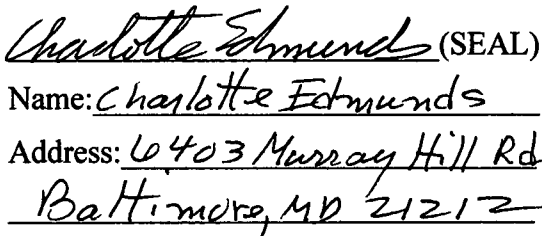 Charlotte Edmunds (SEAL)
Name: Charlotte Edmunds
Address: 6403 Murray Hill Rd
Baltimore, MD 21212